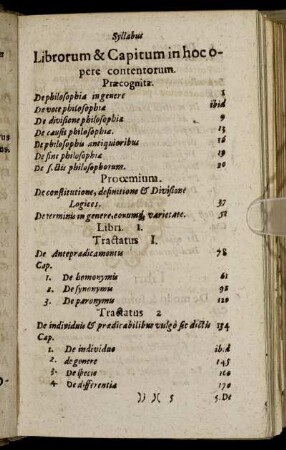 Syllabus
Librorum & Capitum in hoc o-
pere contentorum.
Præcognita.
De philosophia in genere 1
De voce philosophia ibid
De divisione philosophiæ 9
De causis philosophiæ. 13
De philosophis antiquioribus 16
De fine philosophiæ 19
De sectis philosophorum. 20
Proœmiuna.
De constitutione, definitione & Divisione
Logices. 37
De terminis in genere, eorumq varietate. 51
Libri. I.
Tractatus I.
De Antepraedicamentis 78
Cap.
1. De homonymis 61
2. De synonymis 98
3. De paronymis 120
Tractatus 2
De individuis & prædicabilibus vulgò sic dictis 134
Cap.
1. De individuo ibid
2. de genere 145
3. De specie 160
4. De differentia 170
)) )( 5 5. De